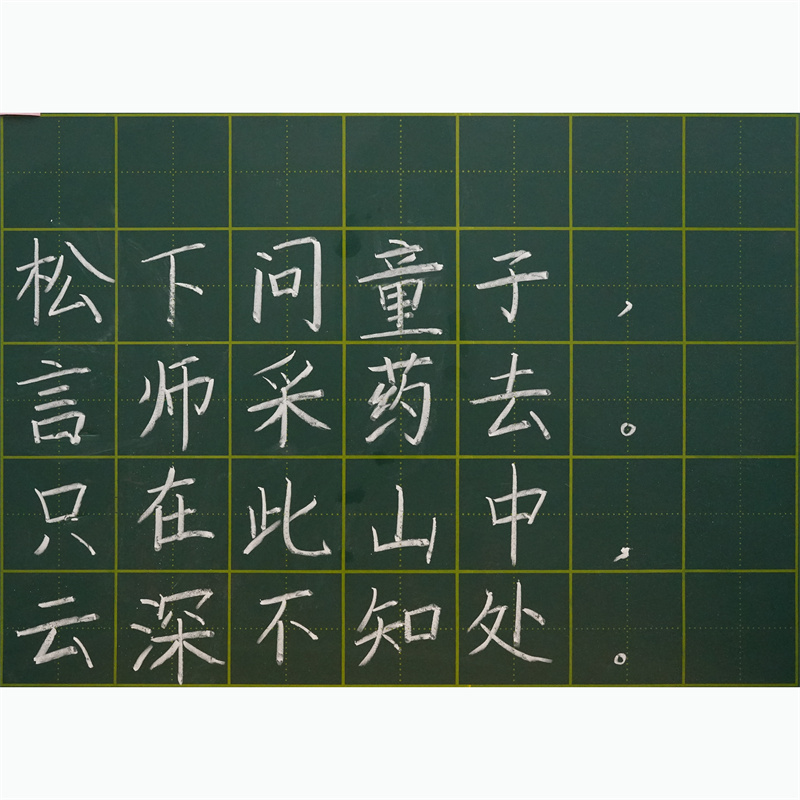 松下问童子，
言师采药去。
只在此山中，
云深不知处。